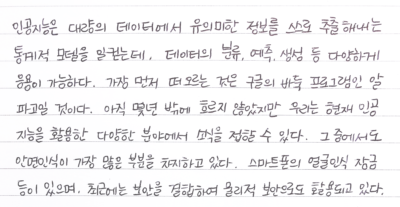 인공지능은 대량의 데이터에서 유의미한 정보를 스스로 추출해내는
통계적 모델을 일컫는데, 데이터의 분류, 예측, 생성 등 다양하게
응용이 가능하다. 가장 먼저 떠오르는 것은 구글의 바둑 프로그램인 알
파고일 것이다. 아직 몇년 밖에 흐르지 않았지만 우리는 현재 인공
지능을 활용한 다양한 분야에서 소식을 접할 수 있다. 그 중에서도
안면인식이 가장 많은 부분을 차지하고 있다. 스마트폰의 얼굴인식 잠금
등이 있으며, 최근에는 보안을 결합하여 물리적 보안으로도 활용되고 있다.